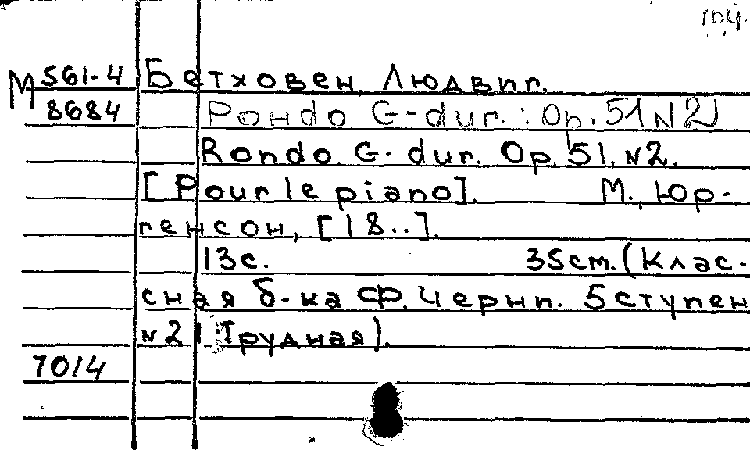 М 561-4 Бетховен, Людвиг.
8684 Рондо G-dur. : Op. 51 N2
Rondo G-dur. Op. 51, N2.
[Pour le piano]. М., Юр-
генсон, [18..].
13с. 35см. (Клас-
сная б-ка Ф. Черни. 5 ступен
N2 Трудная).
7014